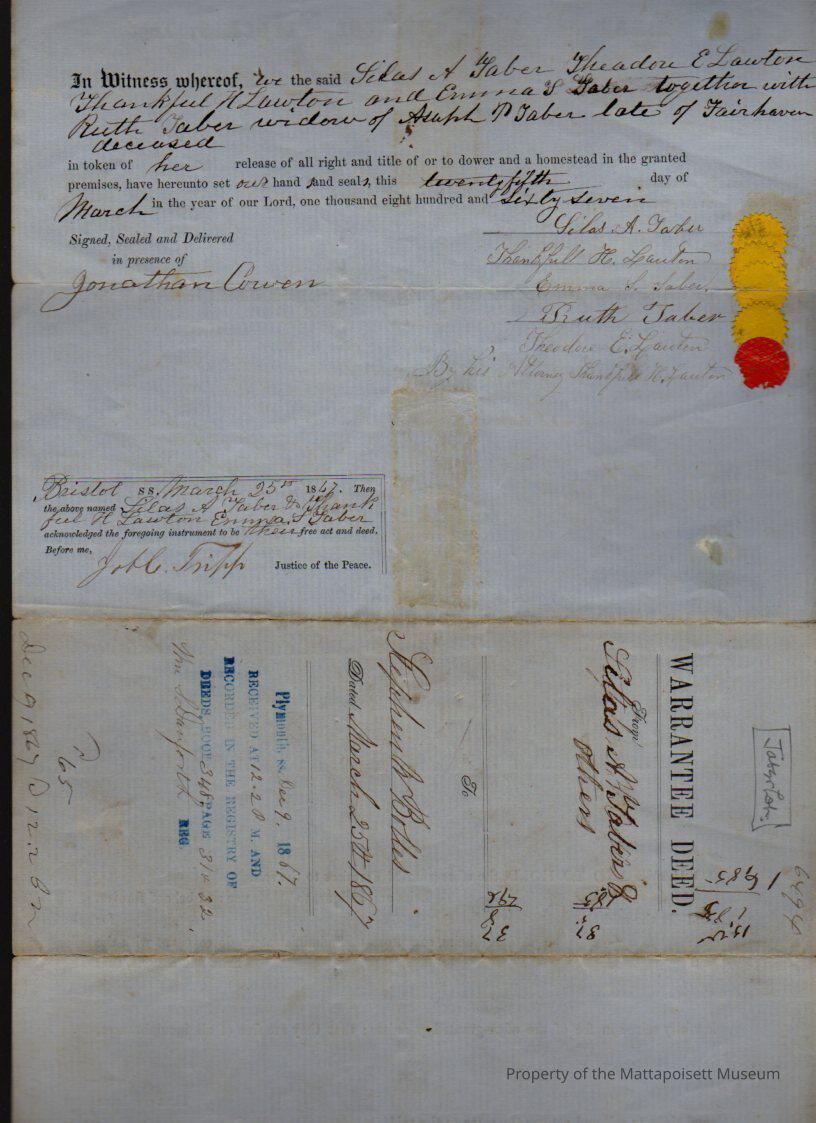 In Witness whereof, we the said Silas A Taber Theodore E Lawton
Thankful H Lawton and Emma S Taber together with
Ruth Taber widow of Asaph P Taber late of Fairhaven
deceased
in token of her release of all right and title of or to dower and a homestead in the granted
premises, have hereunto set our hand and seals, this twenty fifth day of
March in the year of our Lord, one thousand eight hundred and sixty seven
Signed, Sealed and Delivered
in presence of
Jonathan Cowen
Silas A. Taber
Thankfull H. Lawton
Emma S. Taber.
Ruth Taber
Theodore E. Lawton
By his Attorney Thankfull H. Lawton
Bristol ss. March 25th 1867. Then
the above named Silas A Taber & Thank
ful H Lawton Emma S Taber
acknowledged the foregoing instrument to be their free act and deed.
Before me,
Job C. Tripp Justice of the Peace.
Taber Lot.
6494
WARRANTEE DEED.
From
Silas A. Taber &
others
To
Stephen B Bolles
Dated March 25th 1867
Plymouth, ss. Dec 9, 1867.
RECEIVED AT 12.20 M. AND
RECORDED IN THE REGISTRY OF
DEEDS, BOOK 348, PAGE 31 & 32
Wm S Danforth REG.
65
Dec 9 1867
Property of the Mattapoisett Museum